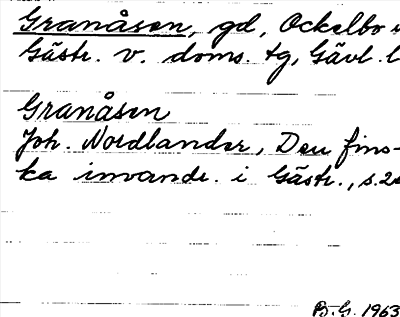 Granåsen, gd, Ockelbo
Gästr. v. doms. tg, Gävl. l
Granåsen
Joh. Nordlander, Den fins-
ka invandr. i Gästr., s.2
B.G. 1963